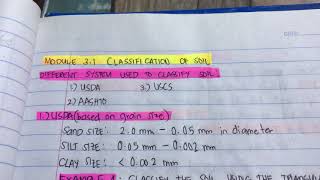 MODULE 3.1 CLASSIFICATION OF SOIL
DIFFERENT SYSTEM USED TO CLASSIFY SOIL
1) USDA 3.) USCS
2) AASHTO
1.) USDA (based on grain size)
SAND SIZE: 2.0 mm - 0.05 mm in diameter
SILT SIZE: 0.05 mm - 0.002 mm
CLAY SIZE: < 0.002 mm
EXAMPLE 1: CLASSIFY THE SOIL USING THE